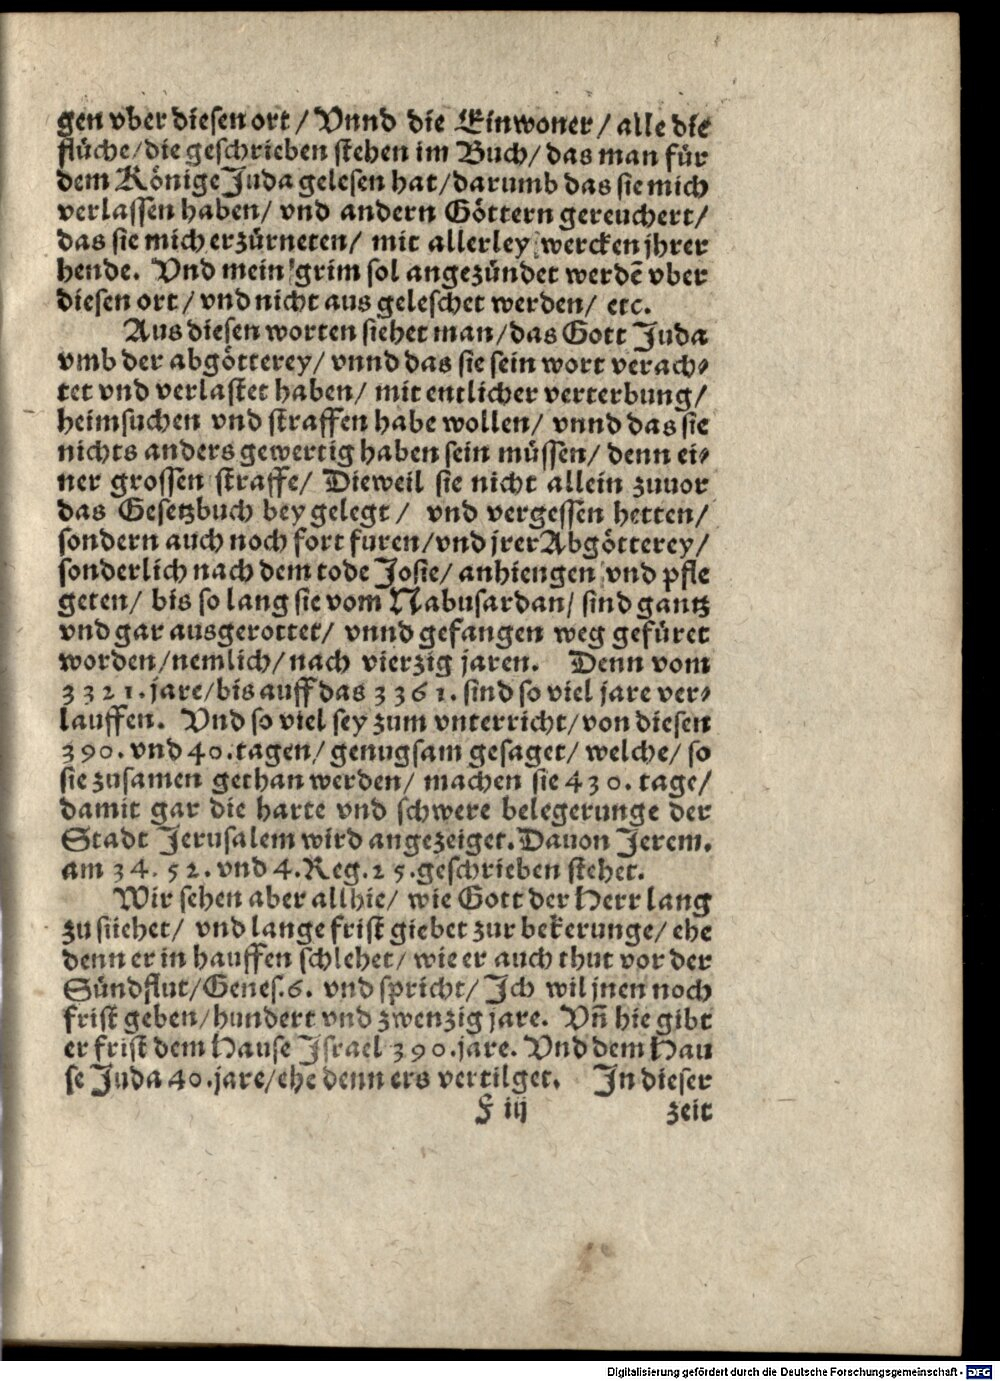 gen vber diesen ort / Vnnd die Einwoner / alle die
flüche / die geschrieben stehen im Buch / das man für
dem Könige Juda gelesen hat / darumb das sie mich
verlassen haben / vnd andern Göttern gereuchert /
das sie mich erzürneten / mit allerley wercken jhrer
hende. Vnd mein grim sol angezündet werdē vber
diesen ort / vnd nicht aus geleschet werden / etc.
Aus diesen worten siehet man / das Gott Juda
vmb der abgötterey / vnnd das sie sein wort verach-
tet vnd verlastet haben / mit entlicher verterbung /
heimsuchen vnd straffen habe wollen / vnnd das sie
nichts anders gewertig haben sein müssen / denn ei-
ner grossen straffe / Dieweil sie nicht allein zuuor
das Gesetzbuch bey gelegt / vnd vergessen hetten /
sondern auch noch fort furen / vnd jrer Abgötterey /
sonderlich nach dem tode Josie / anhiengen vnd pfle
geten / bis so lang sie vom Nabusardan / sind gantz
vnd gar ausgerottet / vnnd gefangen weg gefüret
worden / nemlich / nach vierzig jaren. Denn vom
3321. jare / bis auff das 3361. sind so viel jare ver-
lauffen. Vnd so viel sey zum vnterricht / von diesen
390. vnd 40. tagen / genugsam gesaget / welche / so
sie zusamen gethan werden / machen sie 430. tage /
damit gar die harte vnd schwere belegerunge der
Stadt Jerusalem wird angezeiget. Dauon Jerem.
am 34. 52. vnd 4. Reg. 25. geschrieben stehet.
Wir sehen aber allhie / wie Gott der Herr lang
zu siiehet / vnd lange frist giebet zur bekerunge / ehe
denn er in hauffen schlehet / wie er auch thut vor der
Sündflut / Genes. 6. vnd spricht / Ich wil jnen noch
frist geben / hundert vnd zwenzig jare. Vn̄ hie gibt
er frist dem Hause Israel 390. jare. Vnd dem Hau
se Juda 40. jare / ehe denn ers vertilget. In dieser
F iij zeit
Digitalisierung gefördert durch die Deutsche Forschungsgemeinschaft - DFG